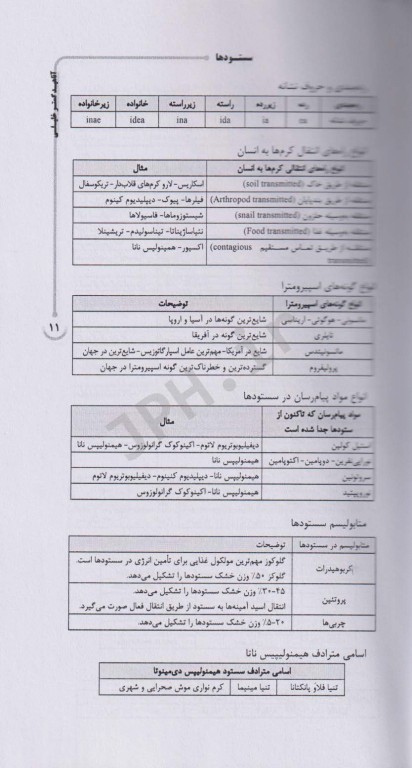 سستودها
آناهید گستر خلیلی
رده‌بندی و حروف نشانه
رده‌بندی رده زیررده راسته زیرراسته خانواده زیرخانواده
ea ia ida ina idea inae
انواع راه‌های انتقال کرم‌ها به انسان
انواع راه‌های انتقالی کرم‌ها به انسان مثال
منتقله از طریق خاک (soil transmitted) اسکاریس- لارو کرم‌های قلاب‌دار- تریکوسفال
منتقله از طریق بندپایان (Arthropod transmitted) فیلرها- پیوک- دیپلیدیوم کنینوم
منتقله به‌وسیله حلزون (snail transmitted) شیستوزوماها- فاسیولاها
منتقله به‌وسیله غذا (Food transmitted) تنیاساژیناتا- تیناسولیدم- تریشینلا
منتقله از طریق تماس مستقیم (contagious اکسیور- همینولپیس نانا
transmitted)
انواع گونه‌های اسپیرومترا
انواع گونه‌های اسپیرومترا توضیحات
مانسونی- هوگونی- ارینایسی شایع‌ترین گونه‌ها در آسیا و اروپا
تایلری شایع‌ترین گونه در آفریقا
مانسونیئیدس شایع در آمریکا- مهم‌ترین عامل اسپارگانوزیس- شایع‌ترین در جهان
پرولیفروم گسترده‌ترین و خطرناک‌ترین گونه اسپیرومترا در جهان
۱۱
انواع مواد پیام‌رسان در سستودها
مواد پیام‌رسان که تاکنون از مثال
سستودها جدا شده است
استیل کولین دیفیلوبوتریوم لاتوم- اکینوکوک گرانولوزوس- هیمنولپیس نانا
نوراپی‌نفرین- دوپامین- اکتوپامین هیمنولپیس نانا
سروتونین هیمنولپیس نانا- دیپلیدیوم کنینوم- دیفیلوبوتریوم لاتوم
نوروپپتید هیمنولپیس نانا- اکینوکوک گرانولوزوس
متابولیسم سستودها
متابولیسم در سستودها توضیحات
کربوهیدرات گلوکوز مهم‌ترین مولکول غذایی برای تأمین انرژی در سستودها است.
گلوکز ۵۰٪ وزن خشک سستودها را تشکیل می‌دهد.
پروتئین ۲۰-۴۵٪ وزن خشک سستودها را تشکیل می‌دهد.
انتقال اسید آمینه‌ها به سستود از طریق انتقال فعال صورت می‌گیرد.
چربی‌ها ۵-۲۰٪ وزن خشک سستودها را تشکیل می‌دهد.
اسامی مترادف هیمنولیپیس نانا
اسامی مترادف سستود هیمنولپیس دی‌مینوتا
تنیا فلاو پانکتاتا تنیا مینیما کرم نواری موش صحرایی و شهری